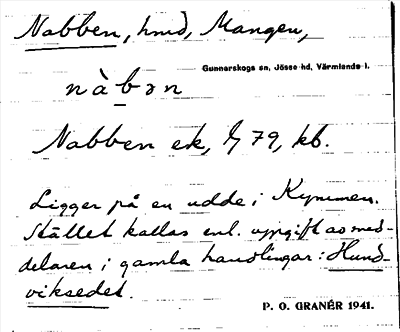 Nabben, hmd, Mangen,
Gunnarskogs sn, Jösse hd, Värmlands l.
nàbən
Nabben ek, 79, kb.
Ligger på en udde i Kymmen.
Stället kallas enl. uppgift av med-
delaren i gamla handlingar: Hund-
viksedet.
P. O. GRANÉR 1941.